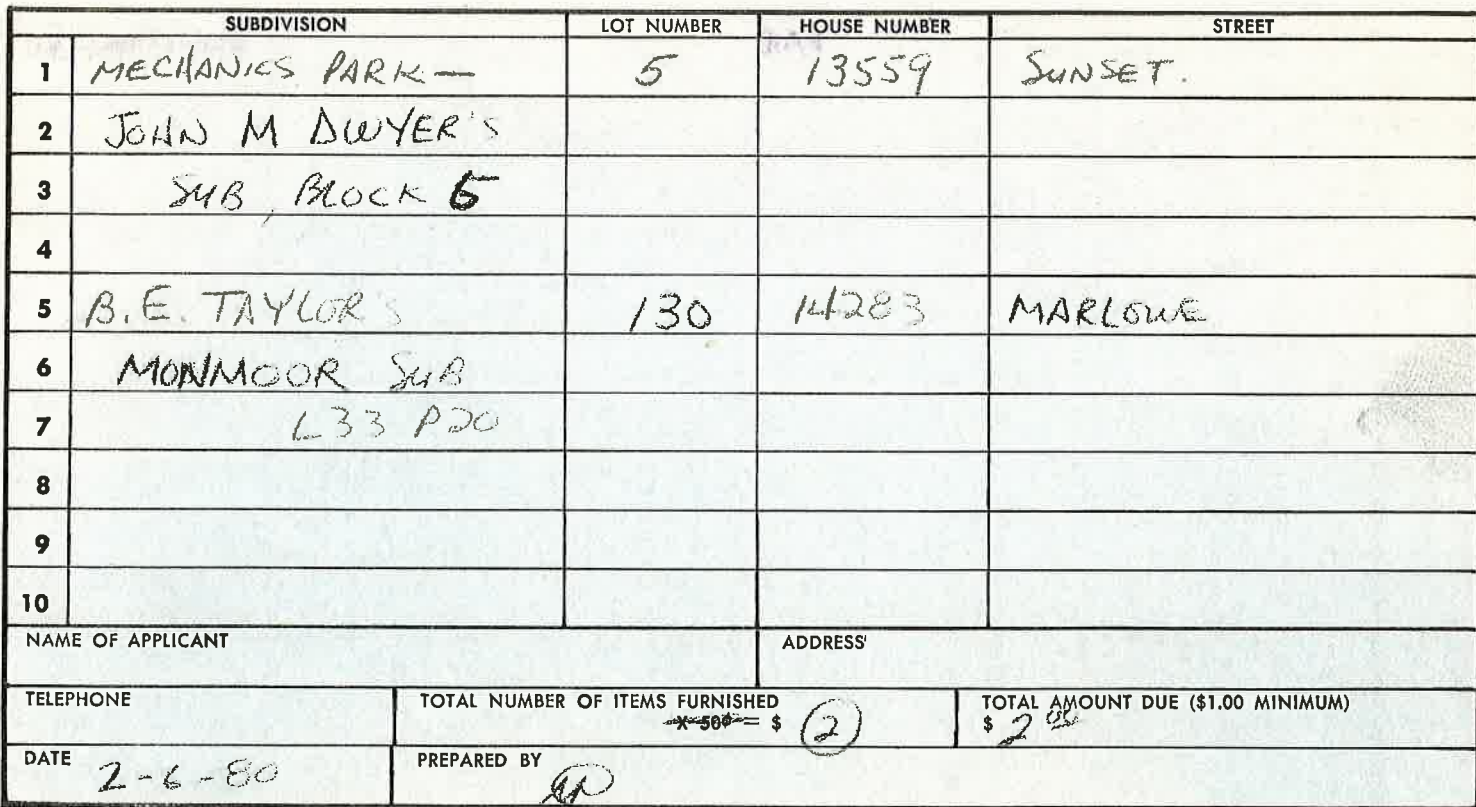 SUBDIVISION LOT NUMBER HOUSE NUMBER STREET
1 MECHANICS PARK — 5 13559 SUNSET.
2 JOHN M DWYER'S
3 SUB, BLOCK 5
4
5 B.E. TAYLOR'S 130 14283 MARLOWE
6 MONMOOR SUB
7 L33 P20
8
9
10
NAME OF APPLICANT ADDRESS
TELEPHONE TOTAL NUMBER OF ITEMS FURNISHED TOTAL AMOUNT DUE ($1.00 MINIMUM)
X 50¢ = $ 2 $ 2 00
DATE 2-6-80 PREPARED BY